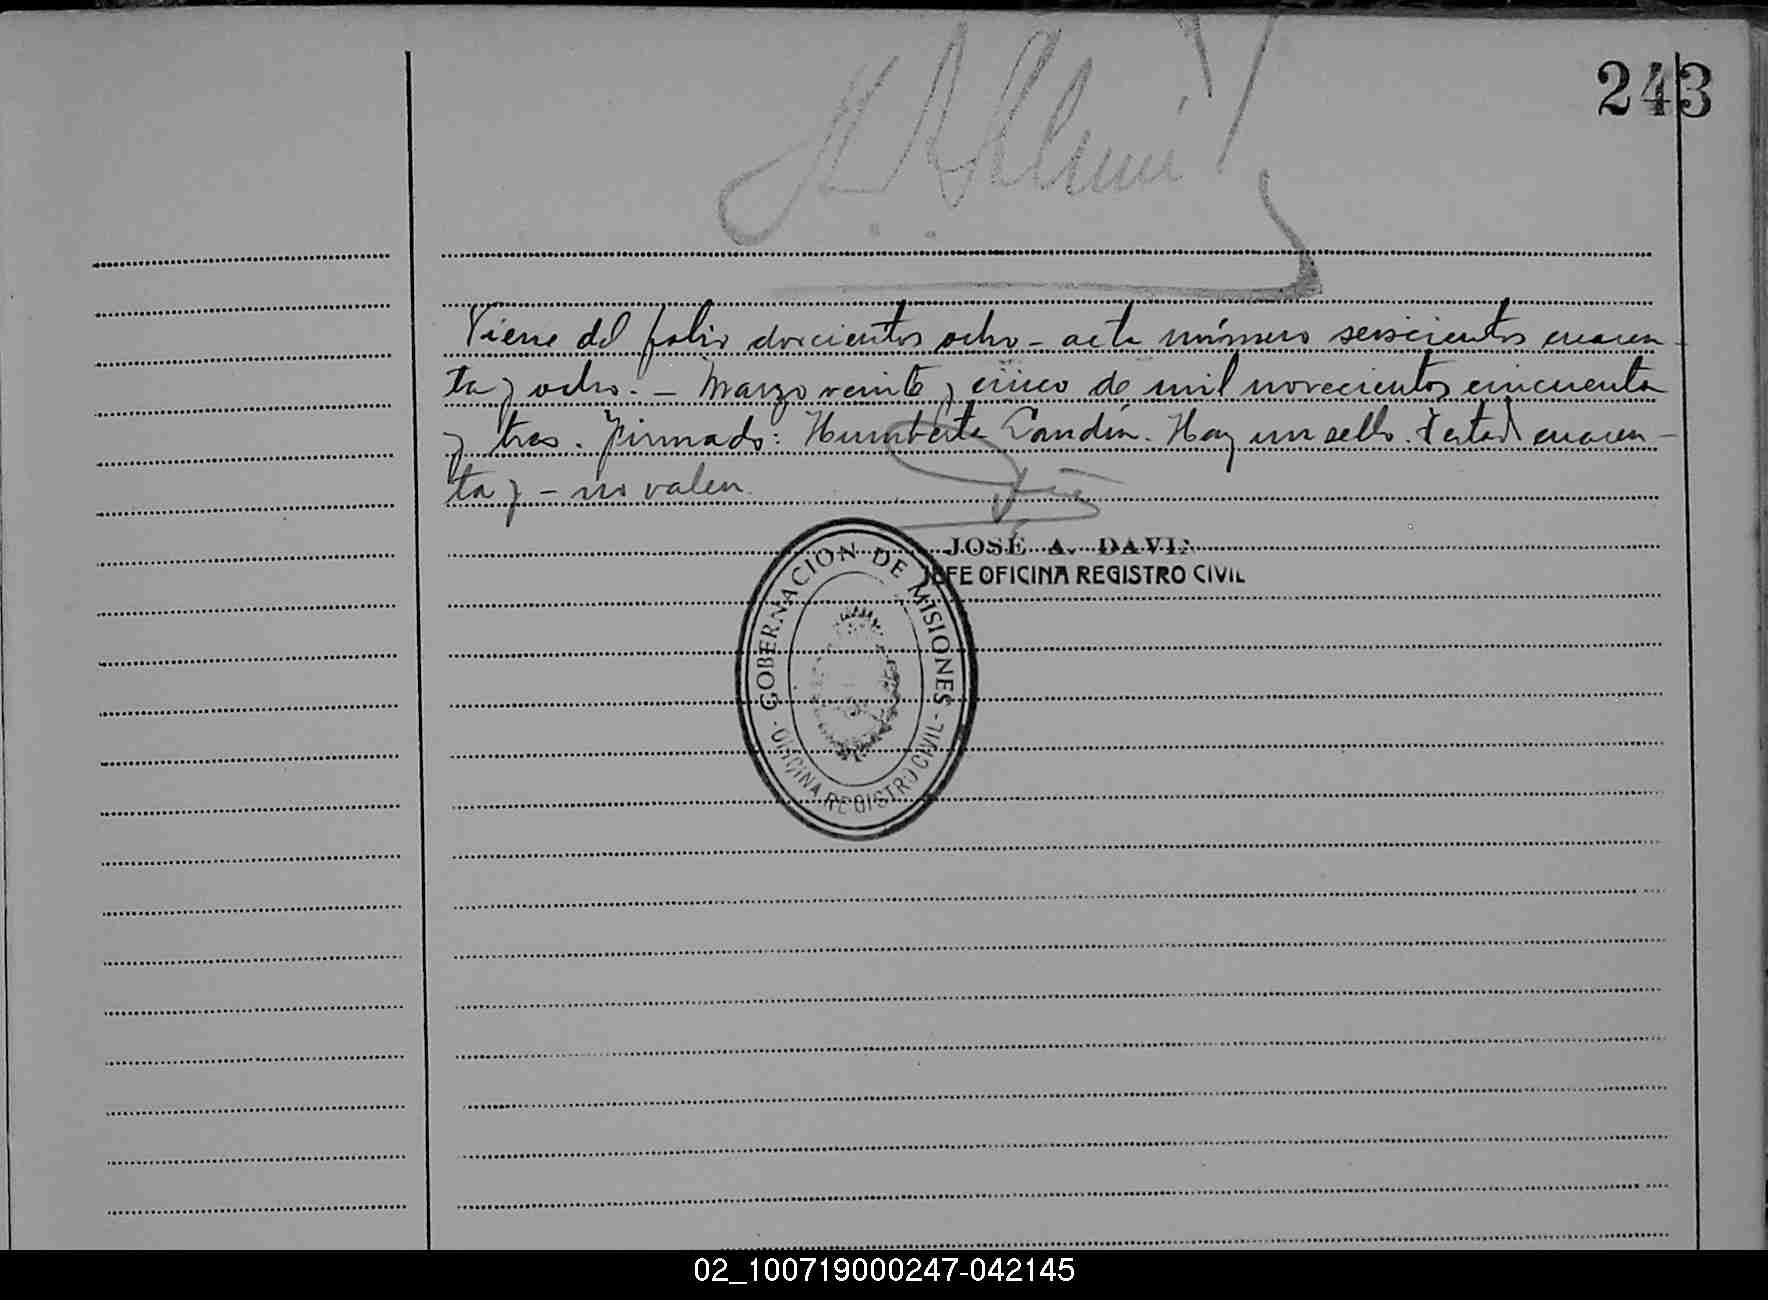 243
Viene del folio doscientos ocho - acta número seiscientos cuaren-
ta y ocho. - Marzo veinte y cinco de mil novecientos cincuenta
y tres. Firmado: Humberto Landín. Hay un sello. Testado cuaren-
ta y - no valen.
JOSÉ A. DAVI
JEFE OFICINA REGISTRO CIVIL
GOBERNACION DE MISIONES
- OFICINA REGISTRO CIVIL -
02_100719000247-042145